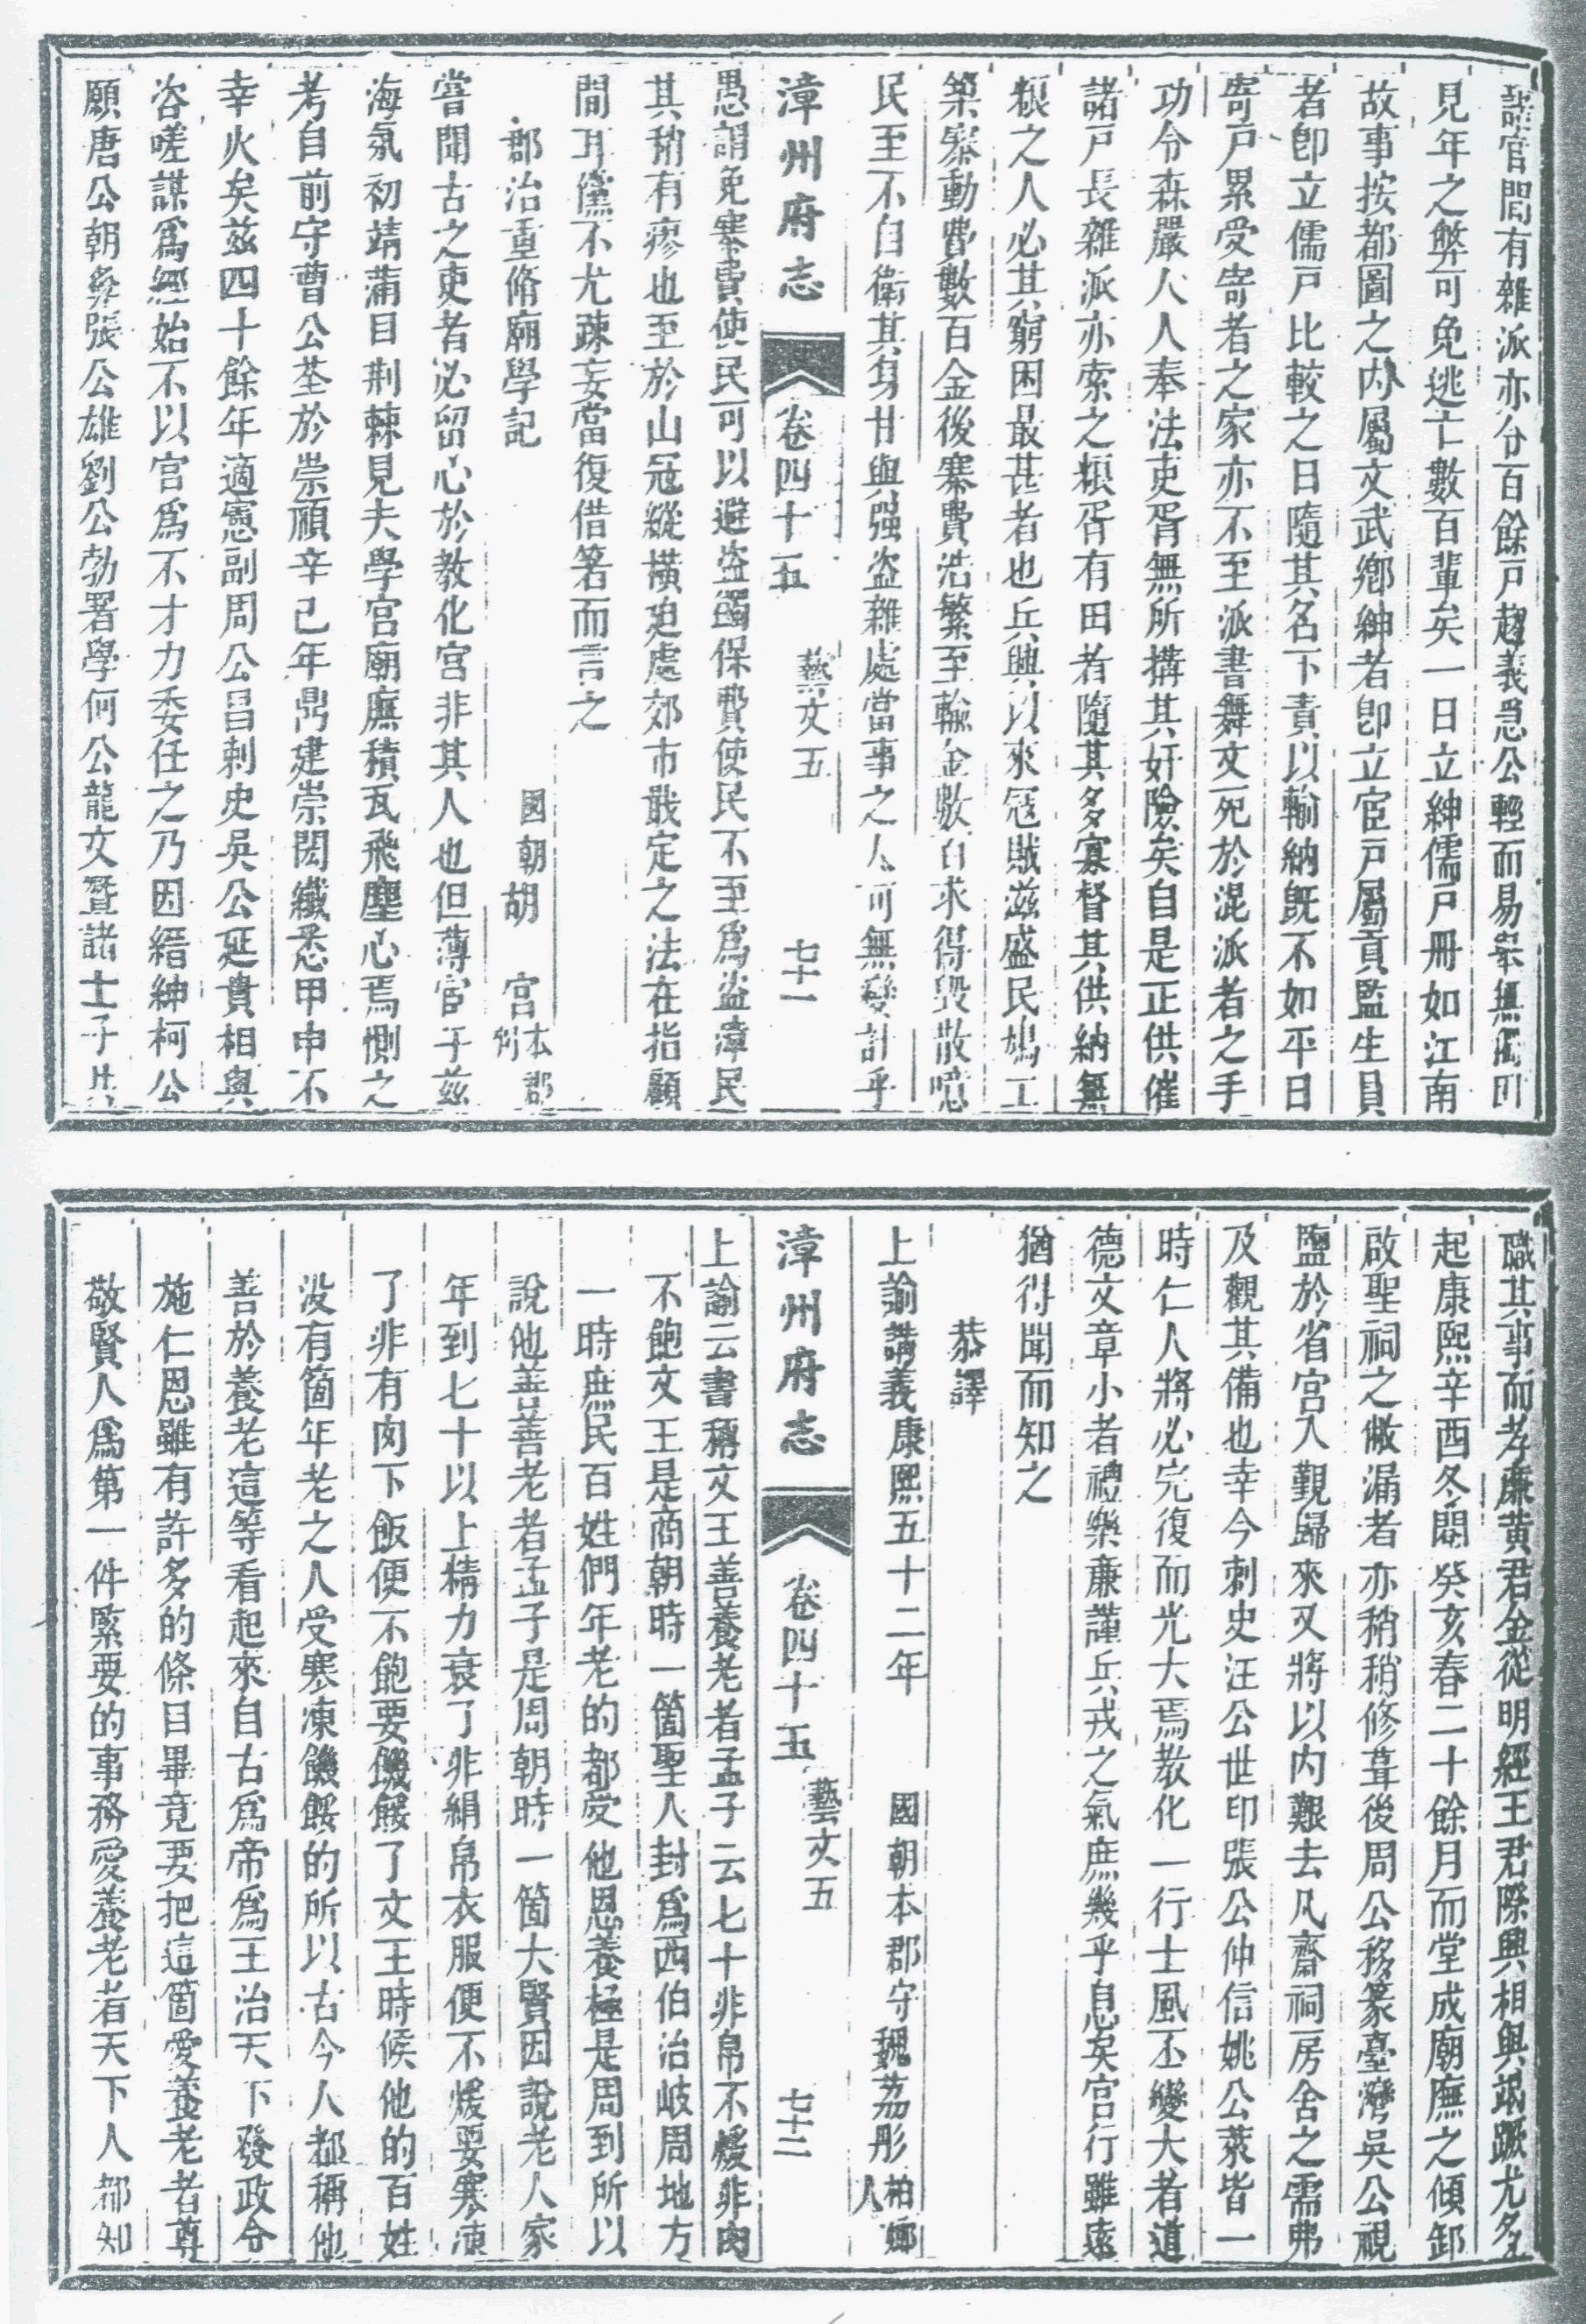 官間有雜派亦分百餘戸趨義急公輕而易舉無
見年之弊可免逃亡數百輩矣一日立紳儒戸冊如江南
故事按都圖之内屬文武鄉紳者卽立宦戸屬貢監生員
者卽立儒戸比較之日隨其名下責以輸納旣不如平日
寄戸累受寄者之家亦不至派書舞文死於混派者之手
功令森嚴人人奉法吏胥無所搆其奸險矣自是正供催
諸戸長雜派亦索之糗胥有田者隨其多寡督其供納無
糗之人必其窮困最甚者也兵興以來冦賊滋盛民鳩工
築寨動費數百金後寨費浩繁至輸金數百求得毀散噫
民至不自衛其身甘與强盜雜處當事之人可無變計乎
漳州府志 卷四十五 藝文五 七十一
愚謂免寨費使民可以避盜蠲保費使民不至爲盜漳民
其稍有瘳也至於山冦縱橫迫處郊市戢定之法在指顧
間耳儻不尤疎妄當復借箸而言之
郡治重脩廟學記 國朝胡 宫本郡
嘗聞古之吏者必留心於教化宮非其人也但薄宦于兹
海氛初靖蒲目荆棘見夫學宮廟廡積瓦飛塵心焉惻之
考自前守曹公荃於崇禎辛已年鼎建崇閎纖悉甲申不
幸火矣兹四十餘年適憲副周公昌刺史吳公延貴相與
咨嗟謀爲經始不以官爲不才力委任之乃因縉紳柯公
願唐公朝彜張公雄劉公勃署學何公龍文暨諸士子共
職其事而孝廉黄君金從明經王君際興相與竭蹶尤多
起康熙辛酉冬閱癸亥春二十餘月而堂成廟廡之傾卸
啟聖祠之敝漏者亦稍稍修葺後周公移篆臺灣吳公視
鹽於省宮入覲歸來又將以内艱去凡齋祠房舍之需弗
及觀其備也幸今刺史汪公世印張公仲信姚公萊皆一
時仁人將必完復而光大焉教化一行士風丕變大者道
德文章小者禮樂亷謹兵戎之氣庶幾乎息矣宮行雖遠
猶得聞而知之
恭譯
上諭講義康熙五十二年 國朝本郡守魏荔彤柏鄉人
漳州府志 卷四十五 藝文五 七十二
上諭云書稱文王善養老者孟子云七十非帛不煖非肉
不飽文王是商朝時一箇聖人封爲西伯治岐周地方
一時庶民百姓們年老的都受他恩養極是周到所以
說他善善老者孟子是周朝時一箇大賢因說老人家
年到七十以上精力衰了非絹帛衣服便不煖要寒凍
了非有肉下飯便不飽要饑餒了文王時候他的百姓
没有箇年老之人受寒凍饑餒的所以古今人都稱他
善於養老這等看起來自古爲帝爲王治天下發政令
施仁恩雖有許多的條目畢竟要把這箇愛養老者尊
敬賢人爲第一件緊要的事務愛養老者天下人都知